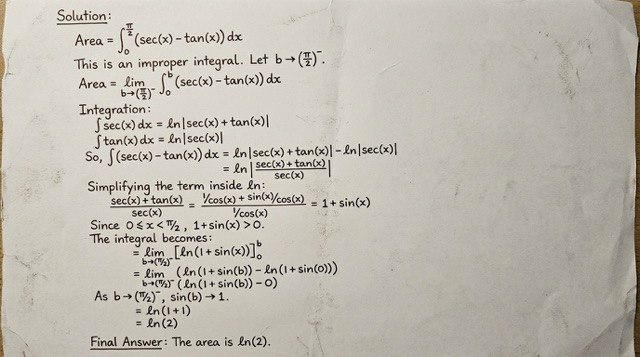 Solution:
Area = ∫₀^(π/2) (sec(x) - tan(x)) dx
This is an improper integral. Let b → (π/2)⁻.
Area = lim_(b→(π/2)⁻) ∫₀^b (sec(x) - tan(x)) dx
Integration:
∫ sec(x) dx = ln|sec(x) + tan(x)|
∫ tan(x) dx = ln|sec(x)|
So, ∫ (sec(x) - tan(x)) dx = ln|sec(x) + tan(x)| - ln|sec(x)|
= ln |(sec(x) + tan(x))/sec(x)|
Simplifying the term inside ln:
(sec(x) + tan(x))/sec(x) = (1/cos(x) + sin(x)/cos(x))/(1/cos(x)) = 1 + sin(x)
Since 0 ≤ x < π/2, 1 + sin(x) > 0.
The integral becomes:
= lim_(b→(π/2)⁻) [ln(1 + sin(x))]₀^b
= lim_(b→(π/2)⁻) (ln(1 + sin(b)) - ln(1 + sin(0)))
= lim_(b→(π/2)⁻) (ln(1 + sin(b)) - 0)
As b → (π/2)⁻, sin(b) → 1.
= ln(1 + 1)
= ln(2)
Final Answer: The area is ln(2).